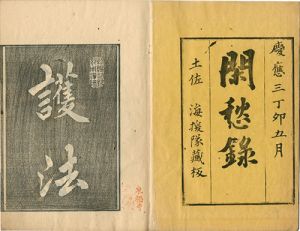 慶應三丁卯五月
閑愁錄
土佐 海援隊藏板
護法